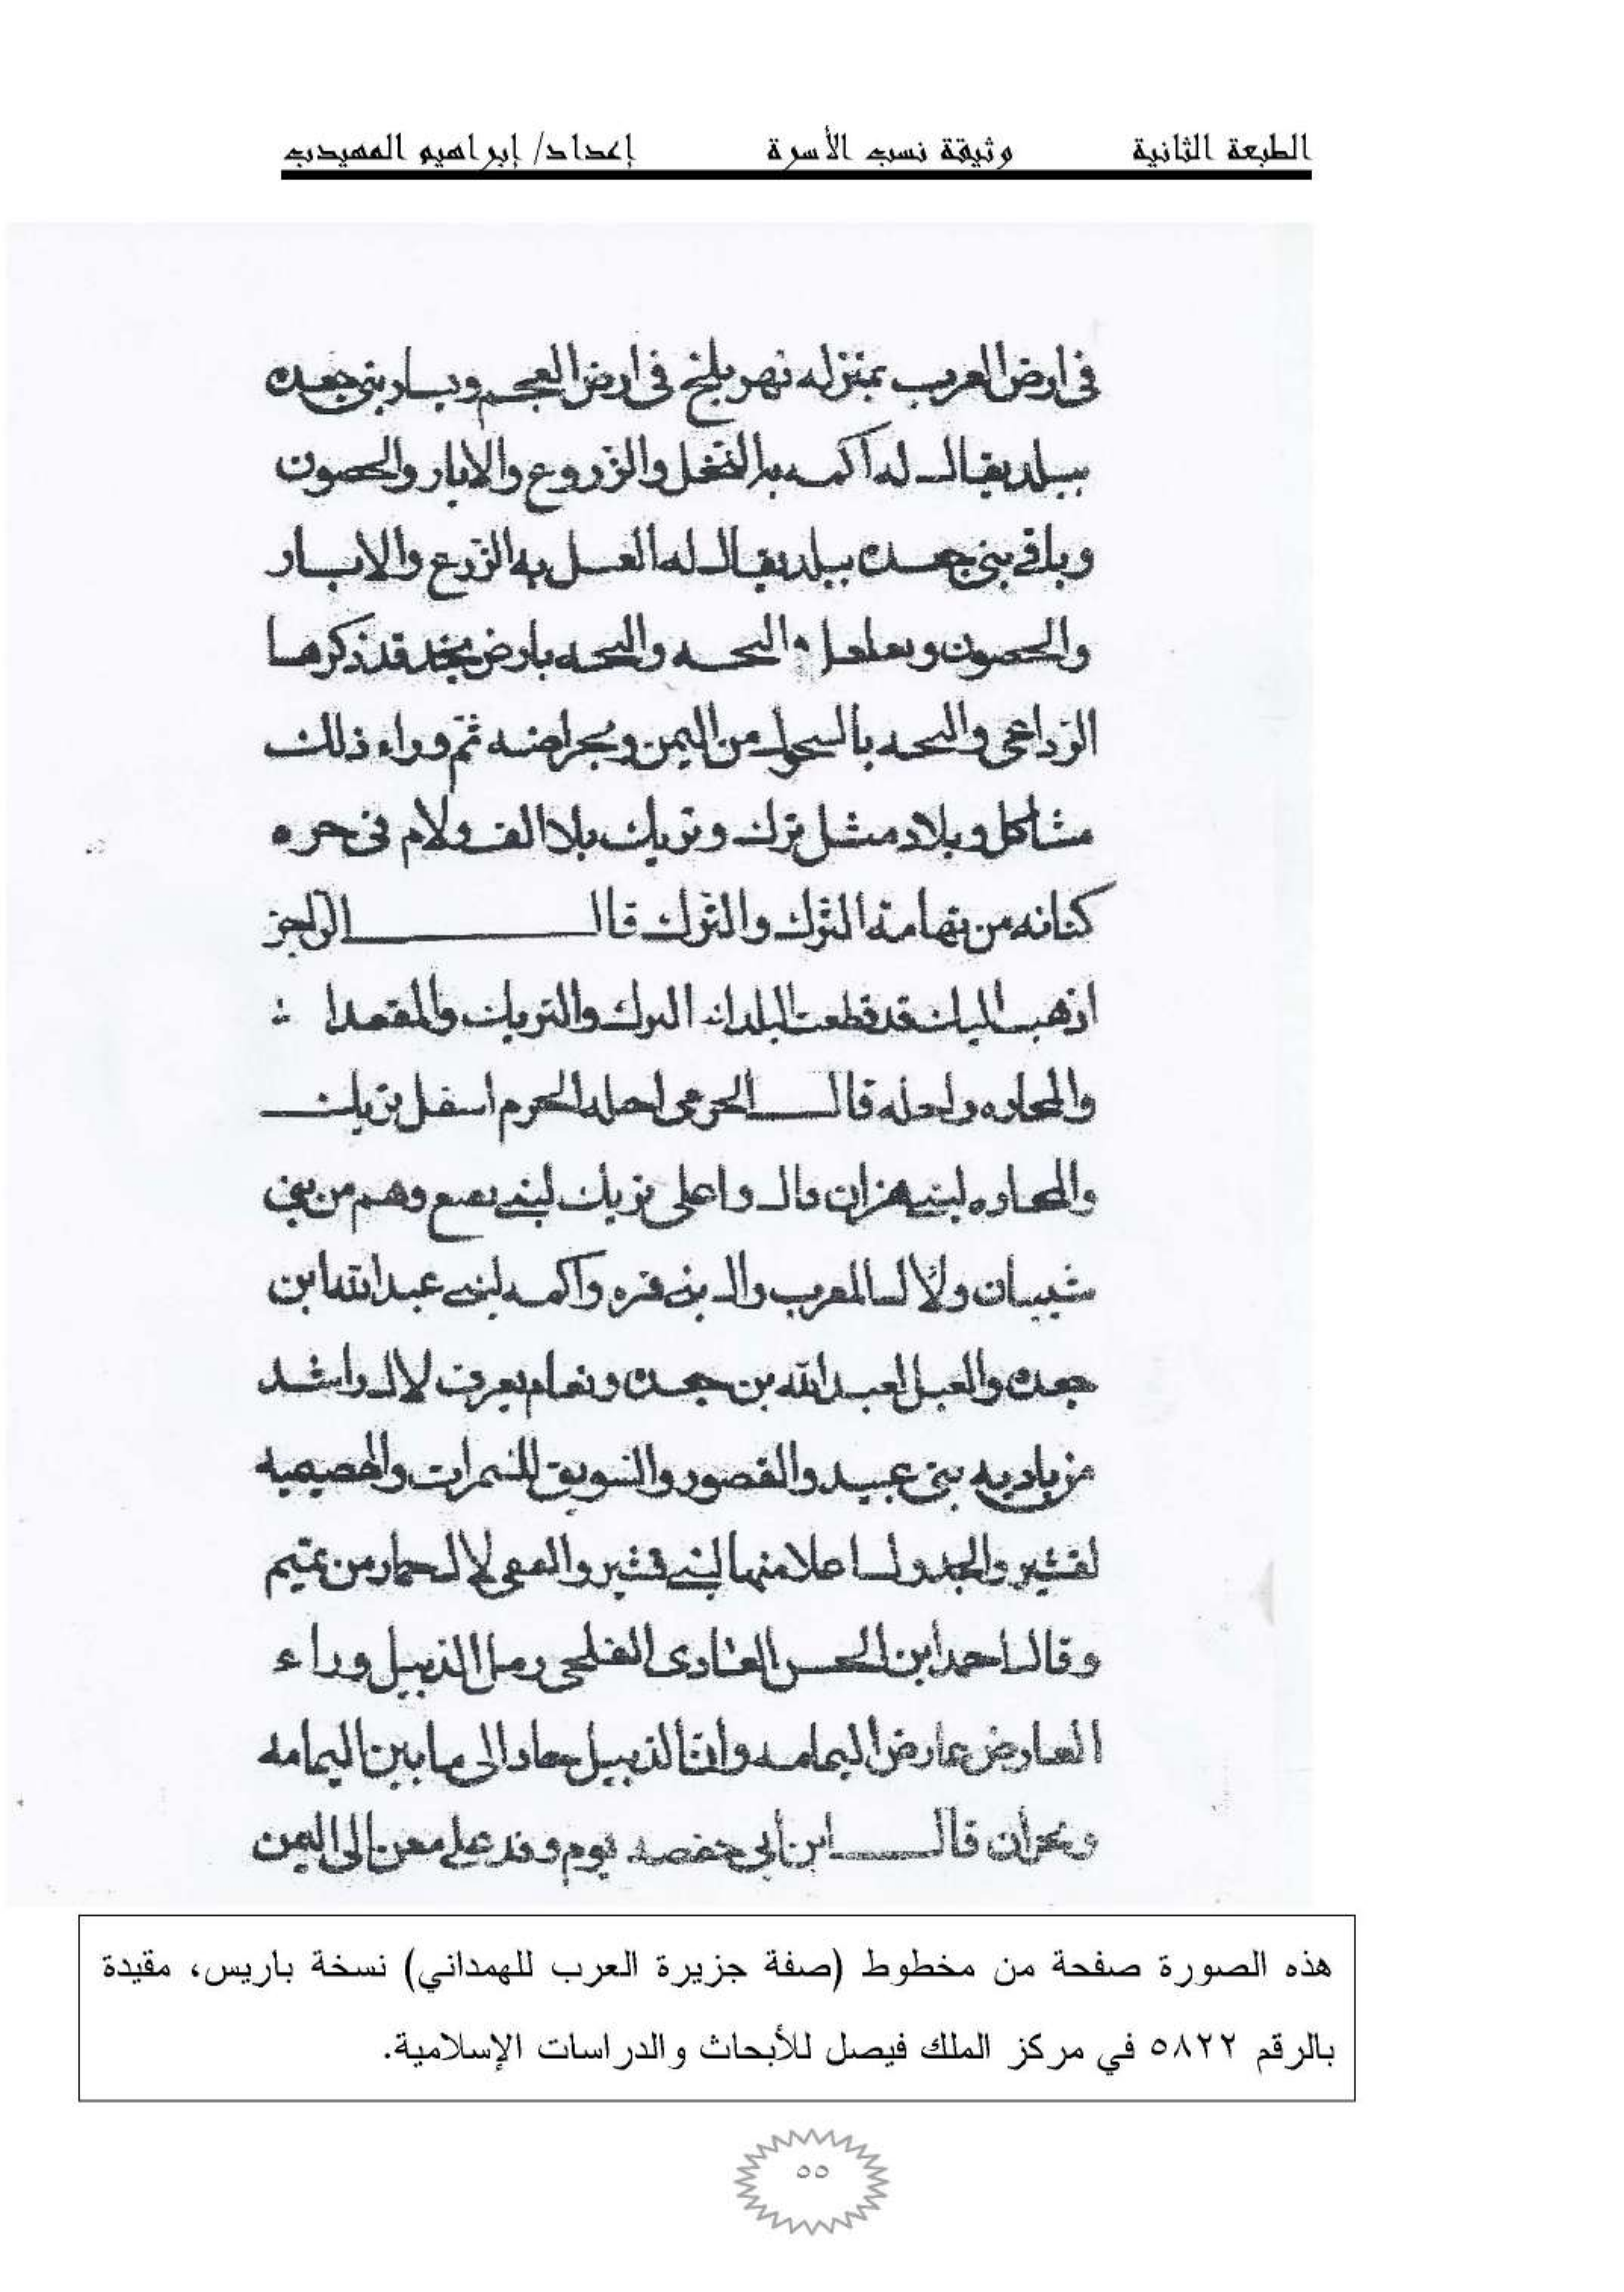 الطبعة الثانية وثيقة نسب الأسرة إعداد/ إبراهيم المهيدب
في ارض العرب بمنزله نهر بلخ في ارض العجم وسار بني جعده
ببلد يقال له اكمه به النخل والزروع والابار والحصون
وباقي بني جعده ببلد يقال له الغسل به الزرع والابار
والحصون والىحه والىحه بارض نجد قد ذكرها
الرداعى والىحه بالسحول من اليمن وبحراضه ثم وراء ذلك
مشاكل وبلاد مثل ترك وتريك بلا الف ولام في حره
كنانه من تهامة الترك والترك قال الراجز
اذهب اليك قد قطعت البلدا الىرك والتريك والمقعدا
والمجازه ولعله قال الجرمى اصله الجرم اسفل تريك
والمجازه لبني هزان قال واعلى تريك لبني وهم من بني
شيبان ولال المعرب وال بني قره واكمه لبنى عبد الله ابن
جعده والغيل لعبد الله بن جعده ونعام يعرف لال راشد
من باديه بني عبيد والقصور والسويق للنمرات والحصيصيه
لقشير والجدول اعلا منها لبني قشير والفقى لال حمار من تميم
وقال احمد ابن الحسن العادى الفلجى رمل الدبيل وراء
العارض عارض اليمامه وانقا الدبيل الى ما بين اليمامه
ونجران قال ابن أبي حفصه يوم وفد على معن الى اليمن
هذه الصورة صفحة من مخطوط (صفة جزيرة العرب للهمداني) نسخة باريس، مقيدة
بالرقم ٥٨٢٢ في مركز الملك فيصل للأبحاث والدراسات الإسلامية.
٥٥